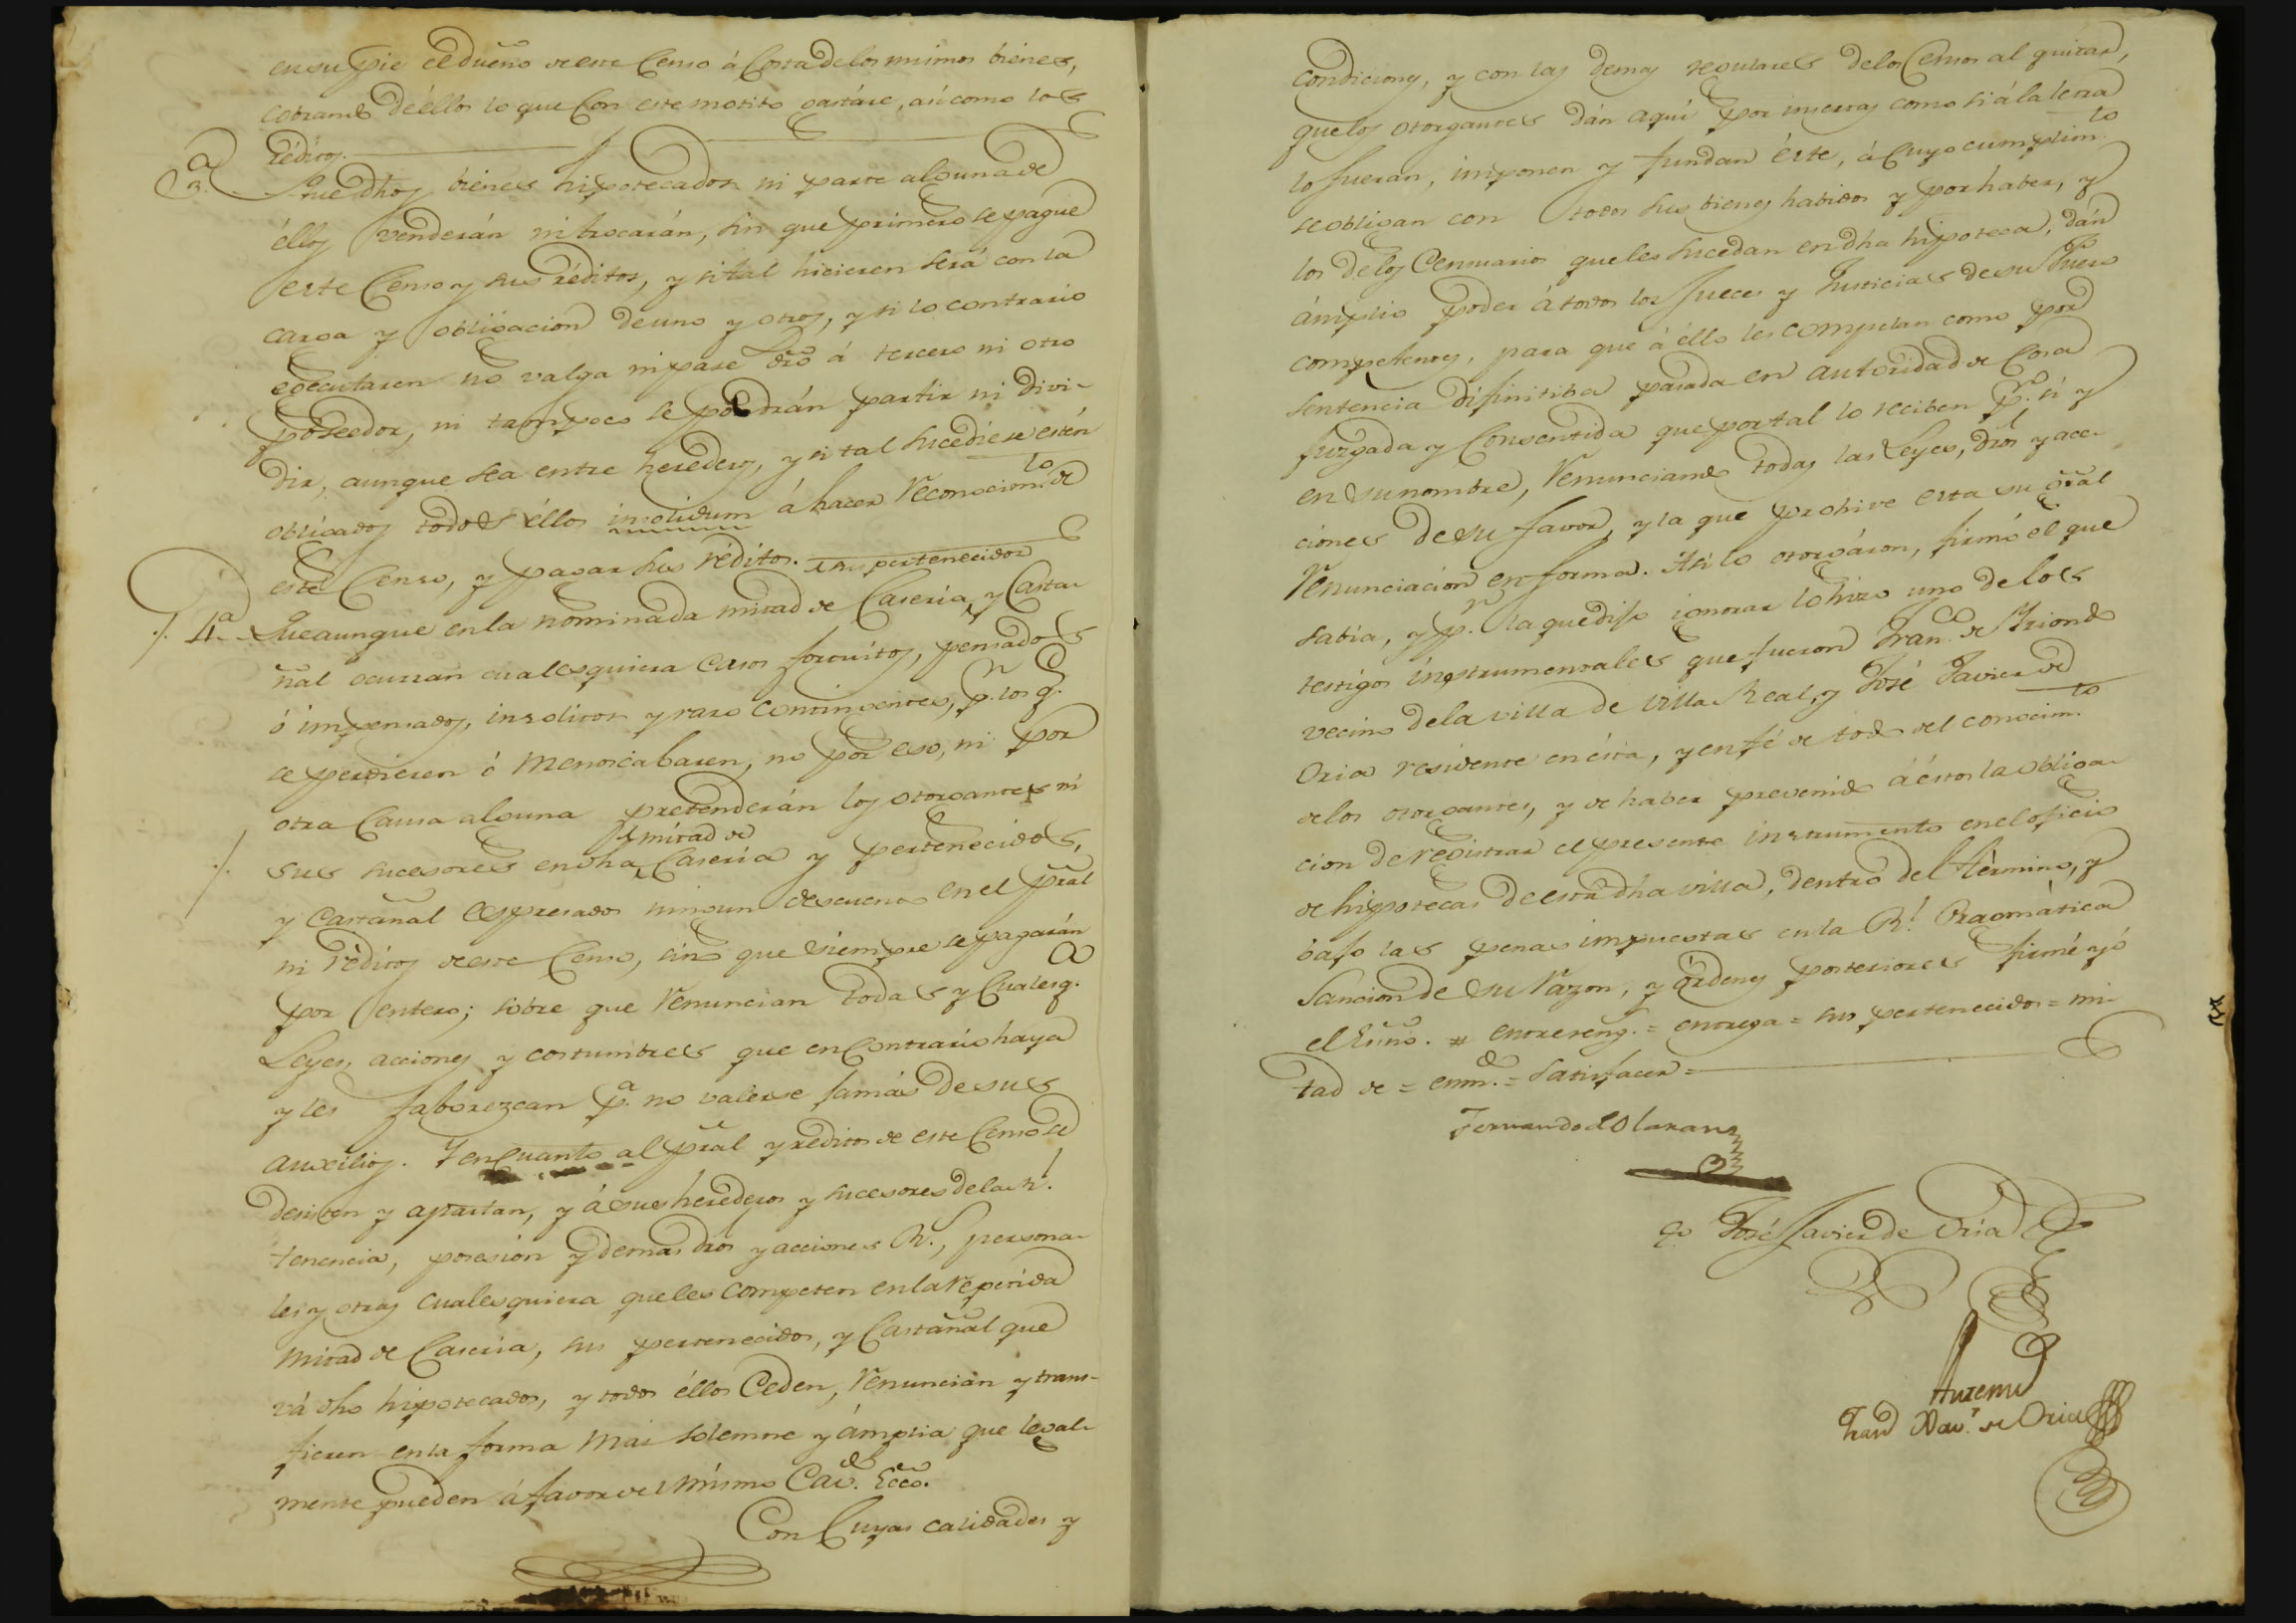 en su pie el dueño de este Censo á Costa de los mismos bienes,
cobrando de éllos lo que Con este motibo gastáre, así como los
réditos.
3.a Que dhos bienes hipotecados ni parte alguna de
éllos venderán ni trocarán, sin que primero se pague
este Censo y sus réditos, y si tál hicieren será con la
carga y obligacion de uno y otros, y si lo contrario
egecutaren no valga ni pase dro á tercero ni otro
poseedor, ni tampoco se podrán partir ni divi-
dir, aunque sea entre herederos, y si tal sucediese estén
obligados todos éllos insolidum á hacer reconocim.to de
este Censo, y pagar sus réditos.
sus pertenecidos
./. 4a Que aunque en la nominada mitad de Caseria, y Casta-
ñal ocurran cualesquiera casos fortuitos, pensados
ó impensados, insolitos y raro contingentes, p.r los q.e
se perdieren ó menoscabaren, no por eso, ni por
otra Causa alguna pretenderán los otorgantes ni
mitad de
./. sus sucesores en dha Caseria y pertenecidos,
y Castañal espresados ningun descuento en el pral
ni réditos de este Censo, sino que siempre se pagarán
por entero; sobre que renuncian todas y Cualesq.a
Leyes, acciones y costumbres que en Contrario haya
y les faborezcan p.a no valerse jamás de sus
auxilios. Y en Cuanto al pral y réditos de este Censo se
desisten y apartan, y á sus herederos y sucesores de la R.l
tenencia, posesion y demas dros y acciones R.s, persona-
les y otras cualesquiera que les competen en la repetida
mitad de Caseria, sus pertenecidos, y Castañal que
vá dho hipotecados, y todos éllos Ceden, renuncian y trans-
fieren en la forma mas solemne y ámplia que legal-
mente pueden á favor del mismo Cav.do Ecco.
Con Cuyas calidades y
condiciones, y con las demas regulares de los Censos al quitar,
que los otorgantes dán aqui por insertas como si á la letra
lo fueran, imponen y fundan éste, á Cuyo cumplim.to
se obligan con todos sus bienes habidos y por haber, y
los de los Censuarios que les sucedan en dha hipoteca, dán
ámplio poder á todos los Jueces y Justicias de su fuero
competentes, para que á éllo les compelan como por
sentencia difinitiba pasada en autoridad de Cosa
Juzgada y Consentida que por tal lo reciben p.r sí y
en su nombre, renunciando todas las Leyes, dros y ac-
ciones de su favor, y la que prohive esta su gral
renunciacion en forma. Asi lo otorgáron, firmó el que
sabia, y p.r la que dijo ignorar lo hizo uno de los
testigos instrumentales que fueron Fran.co de Yriondo
vecino de la villa de Villa Real, y José Javier de
Oria residente en ésta, y en fé de todo del conocim.to
de los otorgantes, y de haber prevenido á éstos la obliga-
cion de registrar el presente instrumento en el oficio
de hipotecas de esta dha villa, dentro del término, y
bajo las penas impuestas en la R.l Pragmática
Sancion de su razon, y órdenes posteriores firmé yó
el Esno. # entrereng.s = entrega = sus pertenecidos = mi-
tad de = enm.do = satisfacer =
Fernando de Olaran
José Javier de Oria
Antemi
Xav.r de Oria